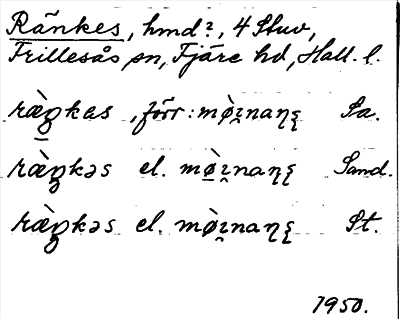 Ränkes, hmd?, 4 Stuv,
Frillesås sn, Fjäre hd, Hall. l.
ræ̀ŋkas, förr: mø̀ɪ̯naɳʂ Sa.
ræ̀ŋkəs el. mø̀ɪ̯naɳʂ Sand.
ræ̀ŋkəs el. mø̀ɪ̯naɳʂ St.
1950.